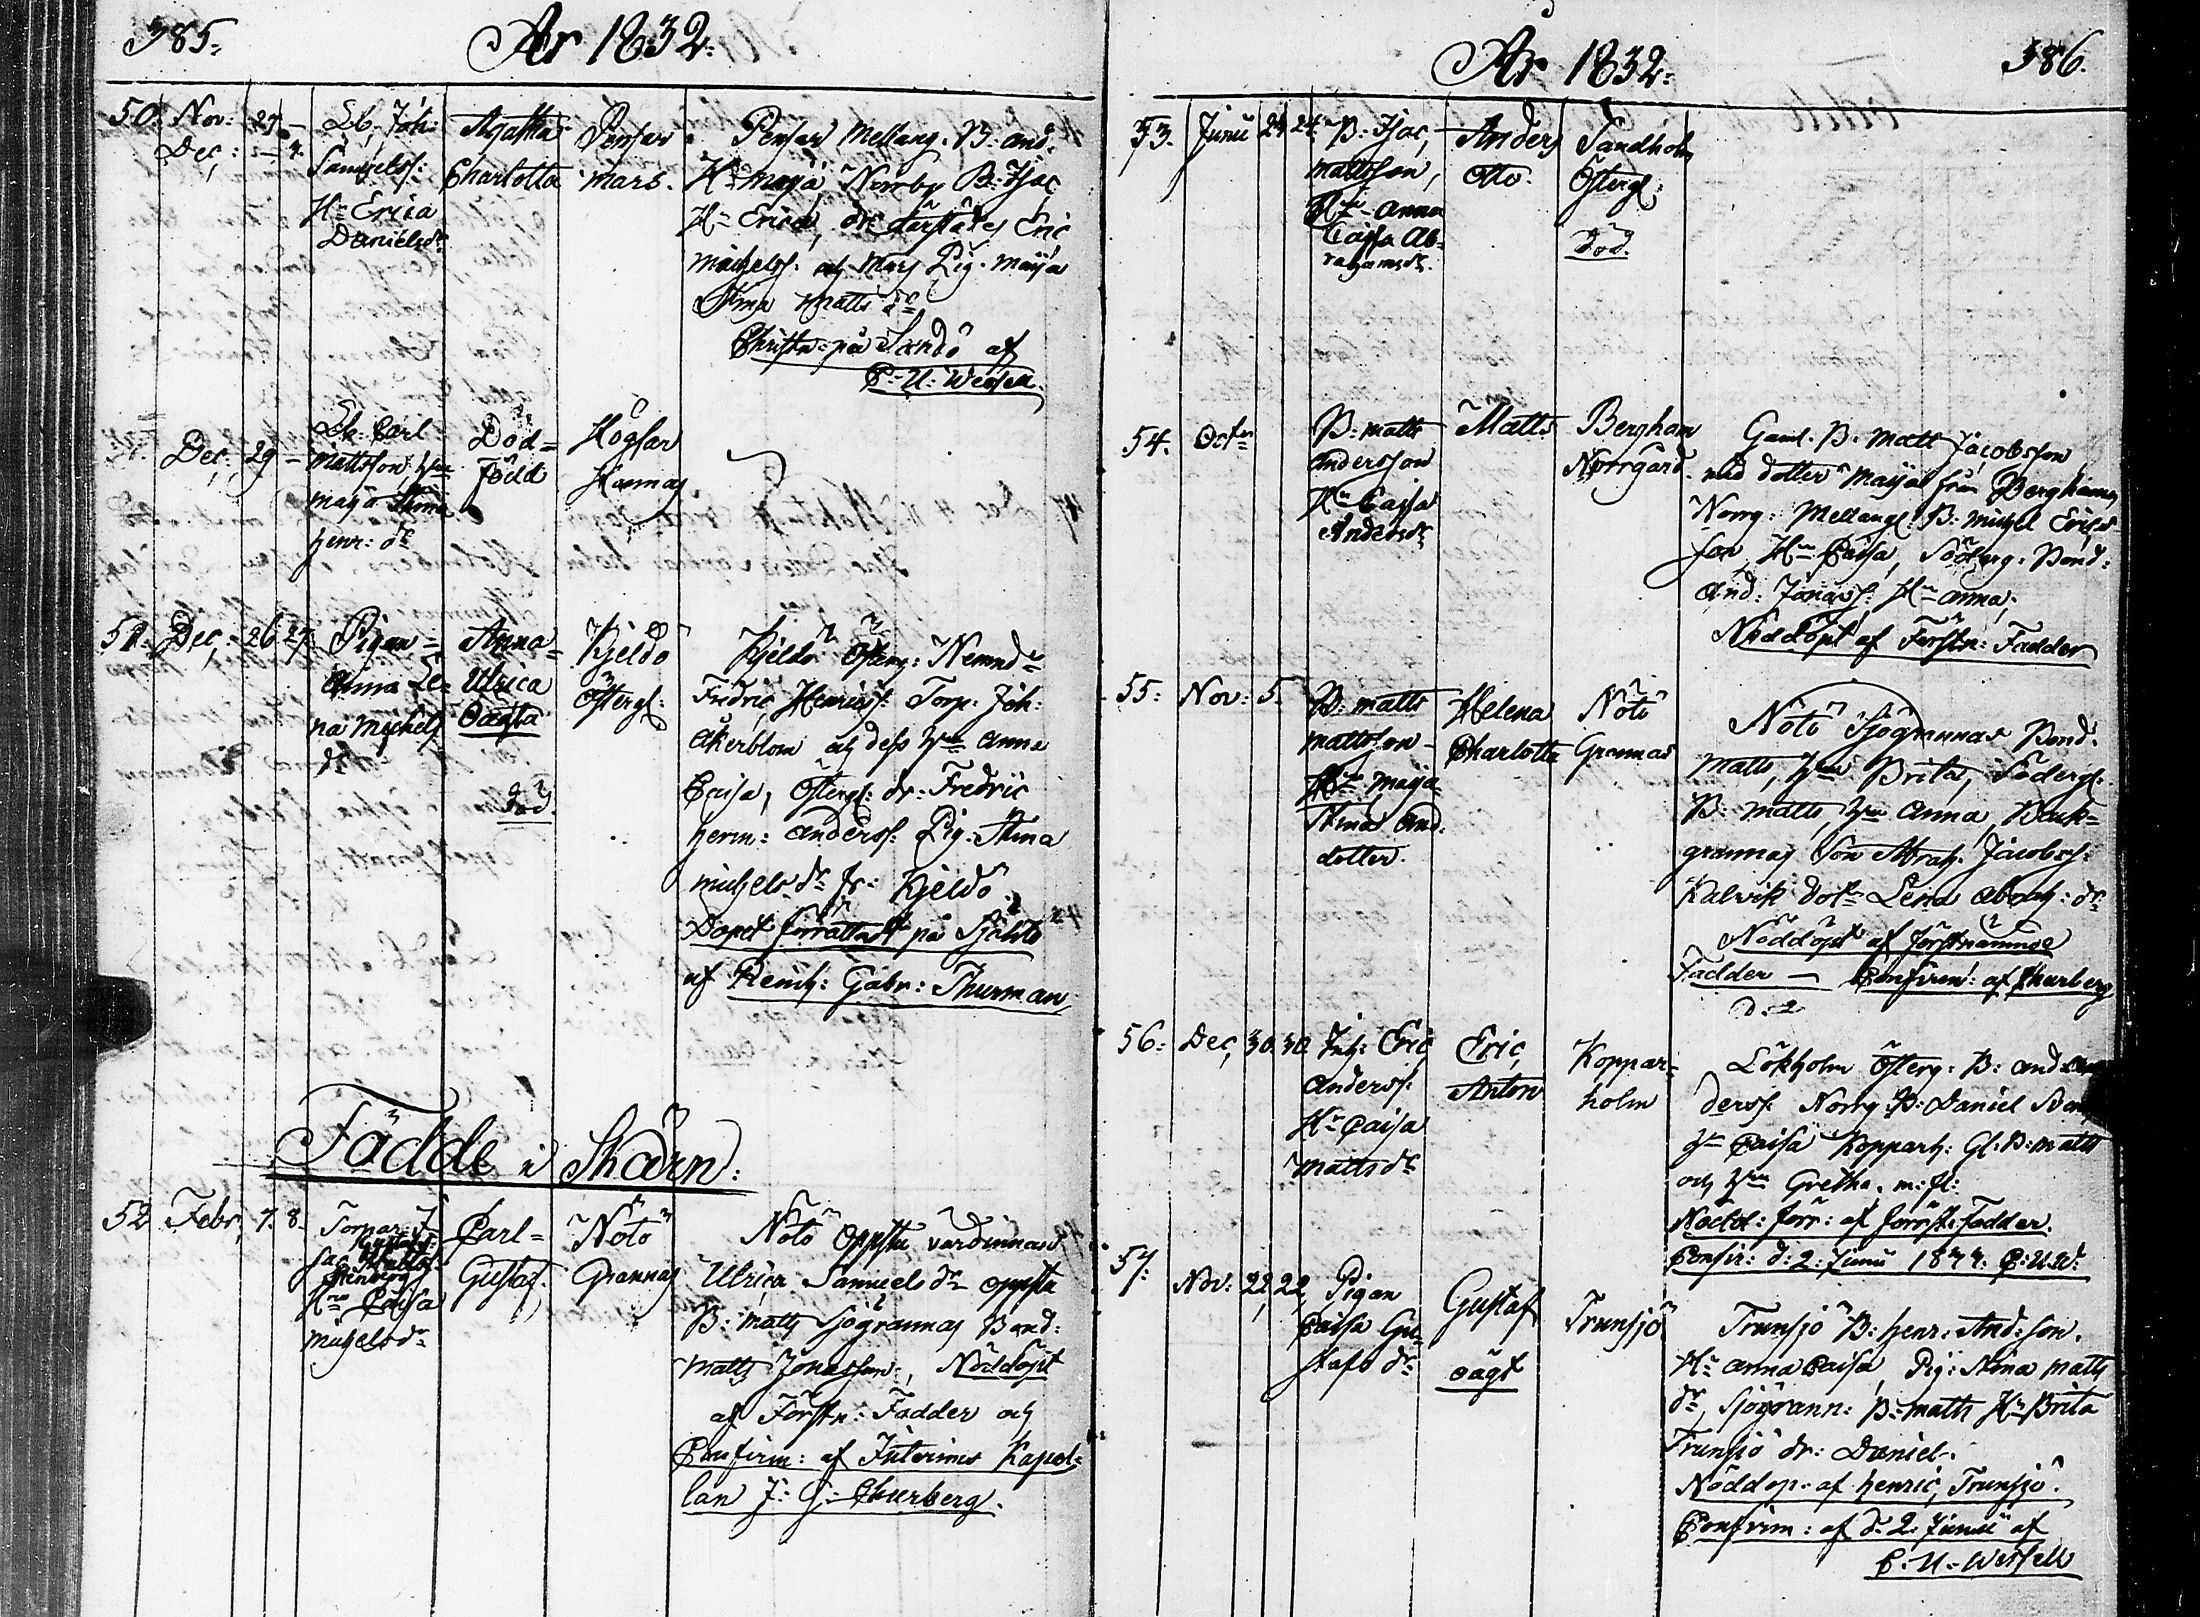 385.
År 1832.
50. Nov: 27.
Dec: 4.
Lb. Joh:
Samuelss:
H:n Erica
Danielsdr
Agatha
Charlotta
Pensar
mars.
Pensar Mellang. B: and.
H:n maja Norrby B: Isac
H:n Erica, dr. Eric
michelss: och mars Pig. maja
Stina matts dr
Christn: på Sandö af
C: U: Wessell.
Dec. 29
Lb. Carl
mattsson, h:n
maja Stina
henr: dr
Död=
född
Högsar
Hannas
51. Dec: 26 27.
Pigan
Anna Le=
na michels
dr
Anna
Ulrica
Oägta
död.
Kjeldö
Östergl:
Kjeldö Österg: Nemnd:
Fredric Henricss: Torp. Joh:
Åkerblom och dess h:u Anna
Caisa, Östergl: dr: Fredric
herm: anderss: Pig. Stina
michels dr fr: Kjeldö
Dopet förrättadt på
af Henr: Gabr: Thurman.
Födde i Skärn:
52. Febr: 7. 8.
Torpar. I=
sac
Stenberg
H:u Caisa
michels dr
Carl=
Gustaf.
Nötö
Grannas
Nötö Oppstu värdinnan
Ulrica Samuels dr oppstu
B: matts Sjögrannas Bond:
matts Jonasson, Nöddöpt
af Förstn: Fadder och
Confirm: af Interims Kapel=
lan J: G: Churberg.
År 1832.
386.
53. Junii 24 24
B: Isac
mattsson,
H:u anna
Caisa Ab=
rahamsdr.
Anders
Otto.
Sandholm
Östergl:
död.
54. Oct:
B: matts
andersson
H:u Caisa
Andersdr
Matts
Bergham
Norrgård.
Gaml. B. matts Jacobsson
med dotter Maija från Berghamn
Norrg: Mellangl: B: michel Erics
son, H:n Caisa, Söderg. Bond:
And: Jonass: H:n anna,
Nöddöpt af Förstn: Fadder
55: Nov: 5.
B: matts
mattsson
H:u maja
Stina And.
dotter.
Helena
Charlotta
Nötö
Grannas
Nötö Sjögrannas Bond.
matts, h:u Brita, Södergl.
B: matts, h:u Anna, Back=
grannas Son Abrah. Jacobss:
Kalvik dotr Lena abrah: dr
Nöddöpt af förstnämnde
Fadder — Confirm: af Churberg
d. 2
56: Dec, 30 30
Inh: Eric
anderss:
H:n Caisa
mattsdr
Eric
Anton
Koppar=
holm
Lökholm Österg: B: and
derss: Norrg. B: Daniel
h:u Caisa Kopparh: Gl. B: matts
och h:u Gretha. m: fl:
Nöddt: förr: af förrstn. Fadder.
Confir: d: 2. Junii 1833. C: U: W:
57.
Nov: 22, 22,
Pigan
Caisa Gu=
stafs dr
Gustaf
oägt
Trunsjö
Trunsjö B: henr: And: son.
H:n anna Caisa, Pig: Stina matts
dr, Sjögrann: B: matts H:n Brita
Trunsjö dr: Daniel.
Nöddop. af henric Trunsjö.
Confirm: af d: 2. Junii af
C: U: Wessell